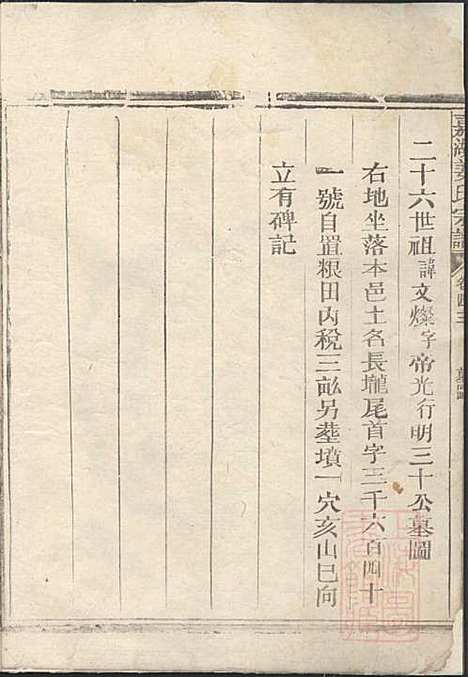 嘉湖姜氏宗譜
二十六世祖諱文燦字帝光行明三十公墓圖
右地坐落本邑土名長壠尾首字三千六百四十
一號自置粮田內稅三畝另塟墳一穴亥山巳向
立有碑記